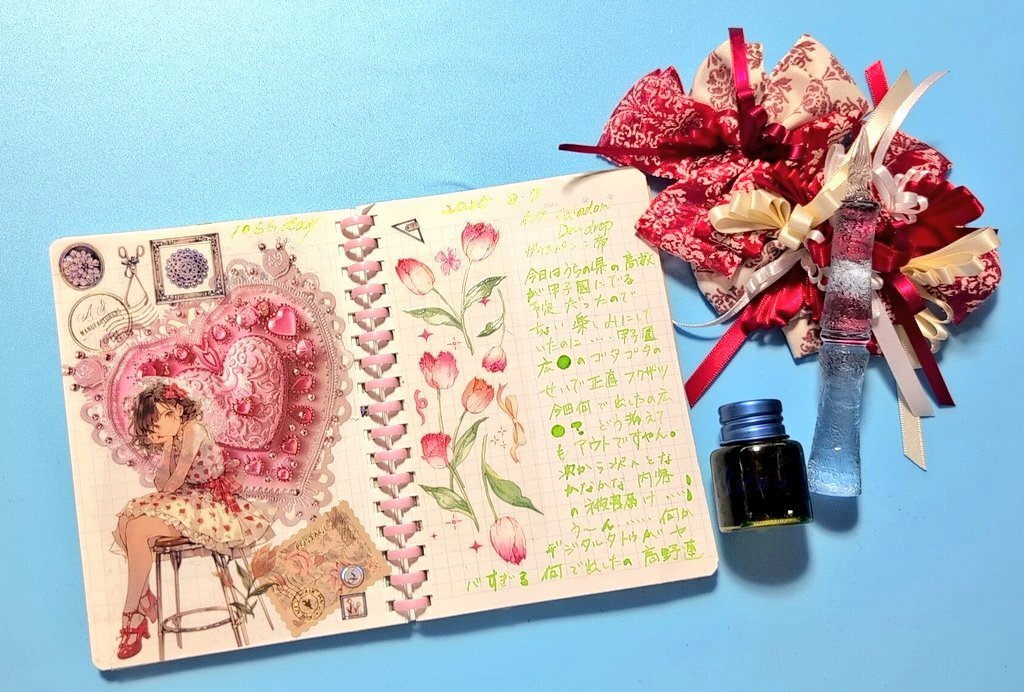 1066day
2025 8.7
Dewdrop
今日はうちの県の高校
が甲子園にでる
予定だったので
ちょい楽しみにして
いたのに……甲子園
広●のゴタゴタの
せいで正直フクザツ
今回何で出したの広
●?どう考えて
もアウトですやん。
次から次へとな
かなかな内容
の被害届け……!
う〜ん……何か
デジタルタトゥがヤ
バすぎる何で出したの高野連
MANUFACTURERS